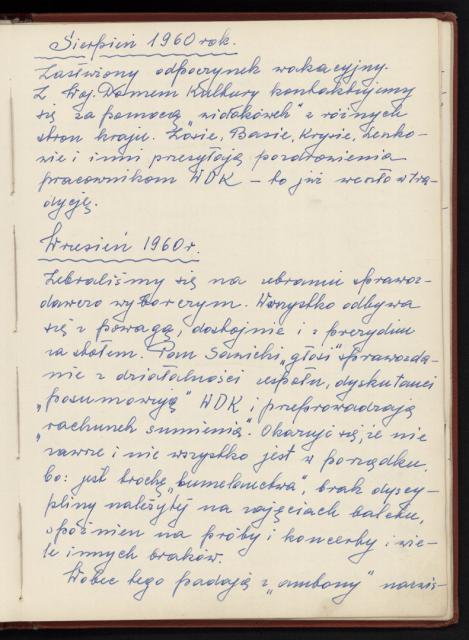 Sierpień 1960 rok.
Zasłużony odpoczynek wakacyjny.
Z Woj. Domem Kultury kontaktujemy
się za pomocą „widokówek" z różnych
stron kraju. Zosie, Basie, Krysie, Zenko-
wie i inni przesyłają pozdrowienia
pracownikom WDK – to już weszło w tra-
dycję.
Wrzesień 1960 r.
Zebraliśmy się na zebraniu sprawoz-
dawczo wyborczym. Wszystko odbywa
się z powagą, dostojnie i z prezydium
za stołem. Pan Sawicki „głosi" sprawozda-
nie z działalności zespołu, dyskutanci
„posumowują" WDK i przeprowadzają
„rachunek sumienia". Okazuje się, że nie
zawsze i nie wszystko jest w porządku,
bo: jest trochę „bumelanctwa", brak dyscy-
pliny należytej na zajęciach baletu,
spóźnień na próby i koncerty i wie-
le innych braków.
Wobec tego padają z „ambony"